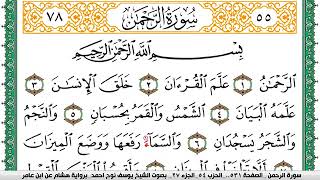 ٥٥ سُورَةُ الرَّحْمَٰن ٧٨
بِسْمِ اللَّهِ الرَّحْمَٰنِ الرَّحِيمِ
الرَّحْمَٰنُ ١ عَلَّمَ الْقُرْءَانَ ٢ خَلَقَ الْإِنسَانَ ٣
عَلَّمَهُ الْبَيَانَ ٤ الشَّمْسُ وَالْقَمَرُ بِحُسْبَانٍ ٥ وَالنَّجْمُ
وَالشَّجَرُ يَسْجُدَانِ ٦ وَالسَّمَآءَ رَفَعَهَا وَوَضَعَ الْمِيزَانَ
سورة الرحمن .. الصفحة ٥٣١ .. الحزب ٥٤ .. الجزء ٢٧ .. بصوت الشيخ يوسف نوح احمد .. برواية هشام عن ابن عامر